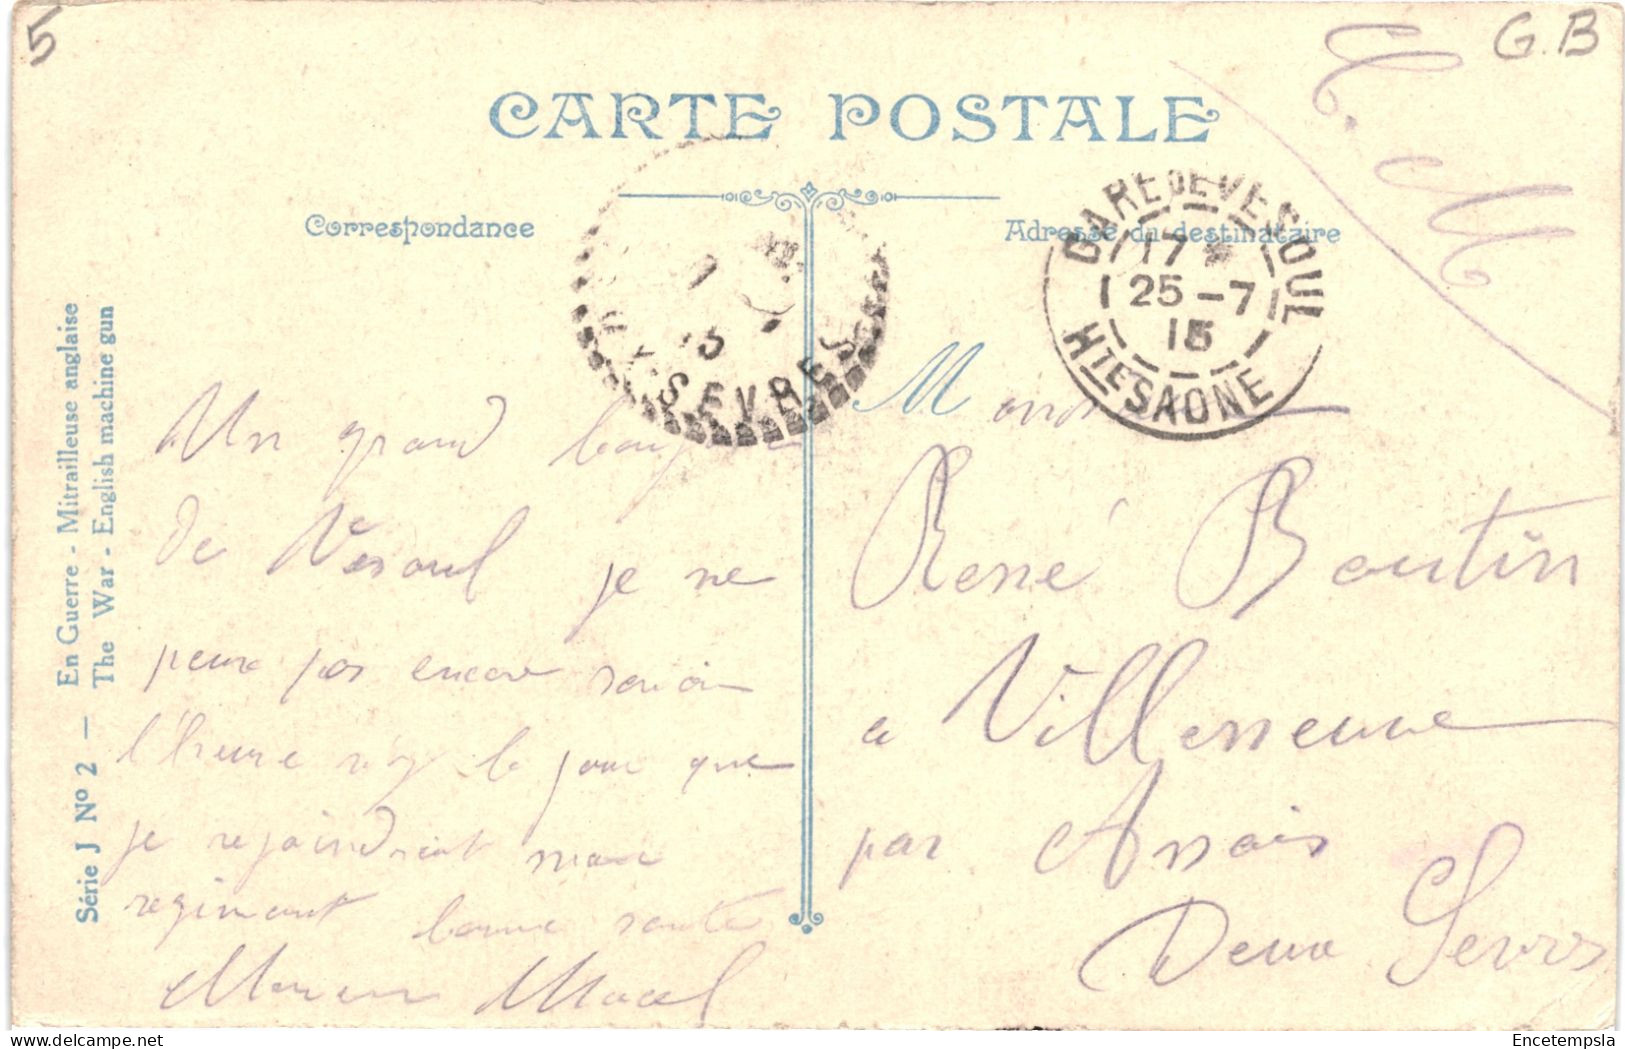 5
G.B
F.M.
CARTE POSTALE
Correspondance
Adresse du destinataire
GARE DE VESOUL
17 *
25 - 7
15
HTE SAONE
X-SEVRES
Série J No 2 — En Guerre - Mitrailleuse anglaise
The War - English machine gun
Un grand bonjour
de Vesoul je ne
peux pas encore savoir
l'heure n'y le jour que
je rejoindrait mon
regiment bonne santé
Marcel
René Boutin
a Villeneuve
par
Deux Sevres
Encetempsla